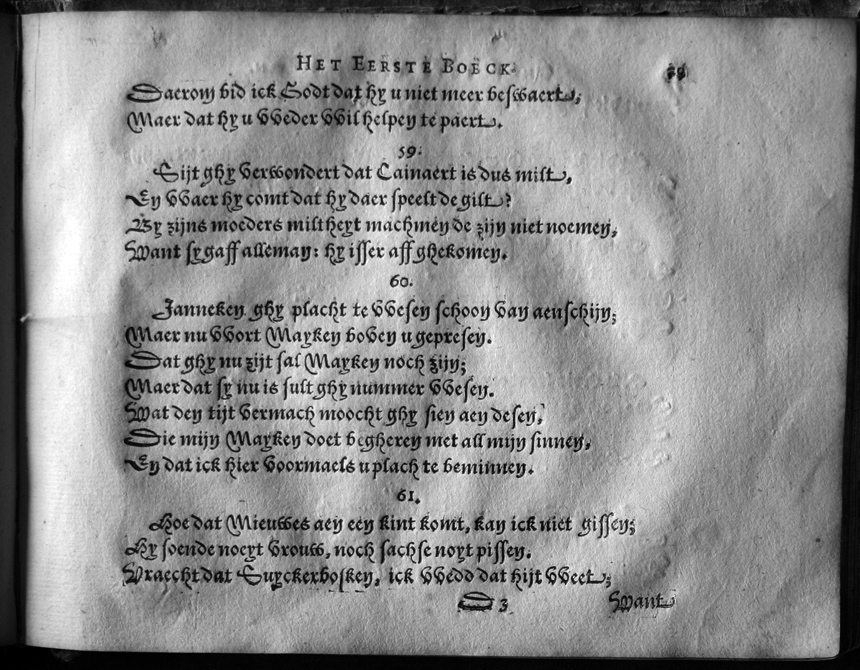 HET EERSTE BOECK.
Daerom bid ick Godt dat hy u niet meer beswaert,
Maer dat hy u vveder vvil helpen te paert.
59.
Sijt ghy verwondert dat Cainaert is dus milt,
En vvaer hy comt dat hy daer speelt de gilt?
By zijns moeders miltheyt machmen de zijn niet noemen,
Want sy gaff alleman: hy isser aff ghekomen.
60.
Janneken ghy placht te vvesen schoon van aenschijn;
Maer nu vvort Mayken boven u gepresen.
Dat ghy nu zijt sal Mayken noch zijn;
Maer dat sy nu is sult ghy nummer vvesen.
Wat den tijt vermach moocht ghy sien aen desen,
Die mijn Mayken doet begheren met all mijn sinnen,
En dat ick hier voormaels u plach te beminnen.
61.
Hoe dat Mieuwes aen een kint komt, kan ick niet gissen;
Hy soende noeyt vrouw, noch sachse noyt pissen.
Vraecht dat Suyckerbosken, ick vvedd dat hijt vveet;
D 3
Want